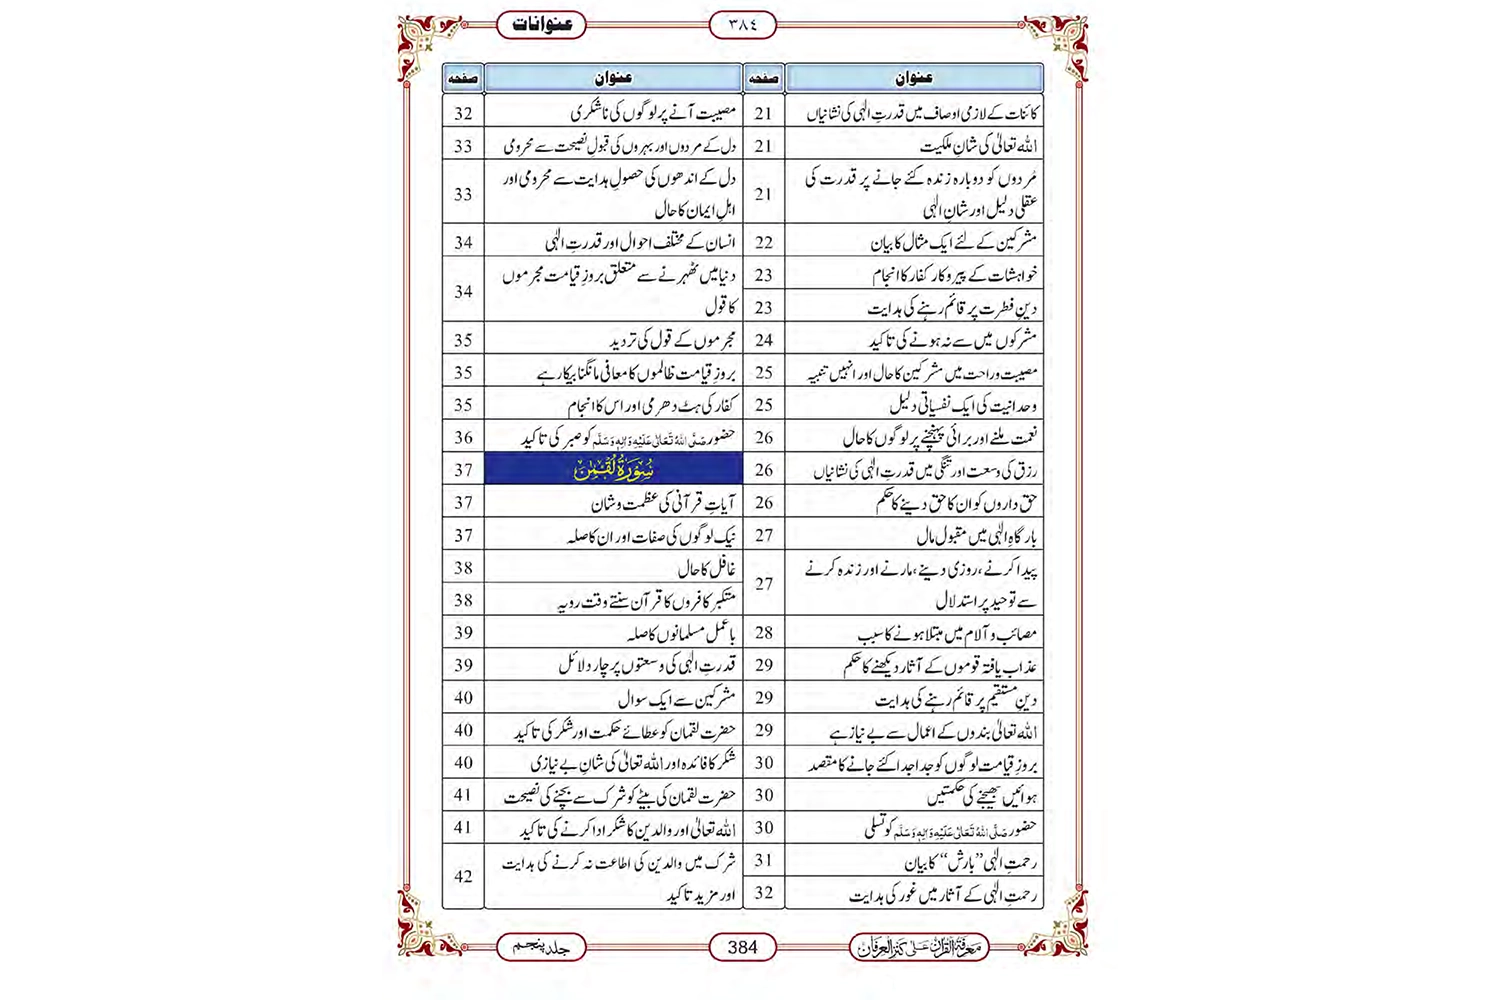 عنوانات
٣٨٤
عنوان صفحہ
کائنات کے لازمی اوصاف میں قدرتِ الٰہی کی نشانیاں 21
اللہ تعالیٰ کی شانِ ملکیت 21
مُردوں کو دوبارہ زندہ کئے جانے پر قدرت کی
عقلی دلیل اور شانِ الٰہی 21
مشرکین کے لئے ایک مثال کا بیان 22
خواہشات کے پیروکار کفار کا انجام 23
دینِ فطرت پر قائم رہنے کی ہدایت 23
مشرکوں میں سے نہ ہونے کی تاکید 24
مصیبت وراحت میں مشرکین کا حال اور انہیں تنبیہ 25
وحدانیت کی ایک نفسیاتی دلیل 25
نعمت ملنے اور برائی پہنچنے پر لوگوں کا حال 26
رزق کی وسعت اور تنگی میں قدرتِ الٰہی کی نشانیاں 26
حق داروں کو ان کا حق دینے کا حکم 26
بارگاہِ الٰہی میں مقبول مال 27
پیدا کرنے، روزی دینے، مارنے اور زندہ کرنے
سے توحید پر استدلال 27
مصائب و آلام میں مبتلا ہونے کا سبب 28
عذاب یافتہ قوموں کے آثار دیکھنے کا حکم 29
دینِ مستقیم پر قائم رہنے کی ہدایت 29
اللہ تعالیٰ بندوں کے اعمال سے بے نیاز ہے 29
بروزِ قیامت لوگوں کو جدا جدا کئے جانے کا مقصد 30
ہوائیں بھیجنے کی حکمتیں 30
حضور صَلَّی اللہُ تَعَالٰی عَلَیْہِ وَاٰلِہٖ وَسَلَّم کو تسلی 30
رحمتِ الٰہی ”بارش“ کا بیان 31
رحمتِ الٰہی کے آثار میں غور کی ہدایت 32
عنوان صفحہ
مصیبت آنے پر لوگوں کی ناشکری 32
دل کے مردوں اور بہروں کی قبولِ نصیحت سے محرومی 33
دل کے اندھوں کی حصولِ ہدایت سے محرومی اور
اہلِ ایمان کا حال 33
انسان کے مختلف احوال اور قدرتِ الٰہی 34
دنیا میں ٹھہرنے سے متعلق بروزِ قیامت مجرموں
کا قول 34
مجرموں کے قول کی تردید 35
بروزِ قیامت ظالموں کا معافی مانگنا بیکار ہے 35
کفار کی ہٹ دھرمی اور اس کا انجام 35
حضور صَلَّی اللہُ تَعَالٰی عَلَیْہِ وَاٰلِہٖ وَسَلَّم کو صبر کی تاکید 36
سُوْرَۃُ لُقْمٰن 37
آیاتِ قرآنی کی عظمت و شان 37
نیک لوگوں کی صفات اور ان کا صلہ 37
غافل کا حال 38
متکبر کافروں کا قرآن سنتے وقت رویہ 38
باعمل مسلمانوں کا صلہ 39
قدرتِ الٰہی کی وسعتوں پر چار دلائل 39
مشرکین سے ایک سوال 40
حضرت لقمان کو عطائے حکمت اور شکر کی تاکید 40
شکر کا فائدہ اور اللہ تعالیٰ کی شانِ بے نیازی 40
حضرت لقمان کی بیٹے کو شرک سے بچنے کی نصیحت 41
اللہ تعالیٰ اور والدین کا شکر ادا کرنے کی تاکید 41
شرک میں والدین کی اطاعت نہ کرنے کی ہدایت
اور مزید تاکید 42
معرفۃ القرآن علیٰ کنز العرفان
384
جلد پنجم